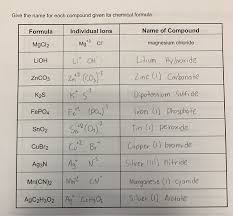 Give the name for each compound given its chemical formula.
Formula Individual Ions Name of Compound
MgCl₂ Mg⁺² Cl⁻ magnesium chloride
LiOH Li⁺ OH⁻ Litium Hydroxide
ZnCO₃ (CO₃)⁻² Zinc (1) Carbonate
K₂S K⁺ S⁻² Dipotassium Sulfide
FePO₄ (PO₄)⁻³ Iron (1) Phosphate
SnO₂ Tin (1) peroxide
CuBr₂ Br⁻ Copper (1) bromide
Ag₃N Ag⁺ Silver (III) Nitride
Mn(CN)₂ CN⁻ Manganese (1) cyanide
AgC₂H₃O₂ Ag⁺ C₂H₃O₂ Silver (1) Acetate